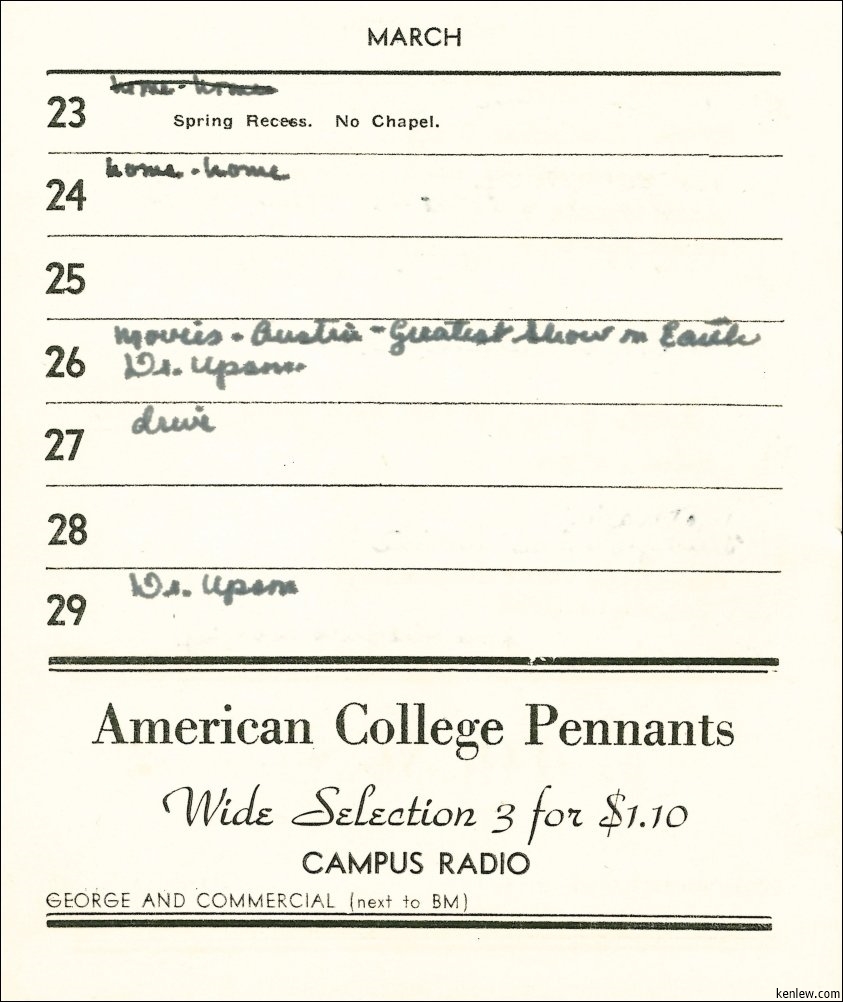 MARCH
home - home
23
Spring Recess. No Chapel.
home - home
24
25
Movies - Austria - Greatest Show on Earth
26 Dr. Upson
drive
27
28
Dr. Upson
29
American College Pennants
Wide Selection 3 for $1.10
CAMPUS RADIO
GEORGE AND COMMERCIAL (next to BM)
kenlew.com